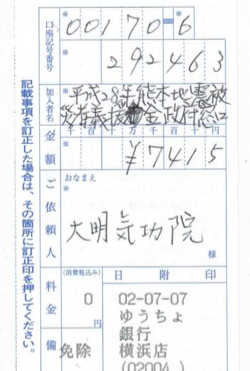 口座記号番号
00170-6
292463
加入者名
平成28年熊本地震被
災者義援金政府窓口
金額
千百十万千百十円
¥7415
ご依頼人
おなまえ
大明気功院
様
料金
(消費税込み)
0
円
日附印
02-07-07
ゆうちょ
銀行
横浜店
(02004)
備
免除
記載事項を訂正した場合は、その箇所に訂正印を押してください。